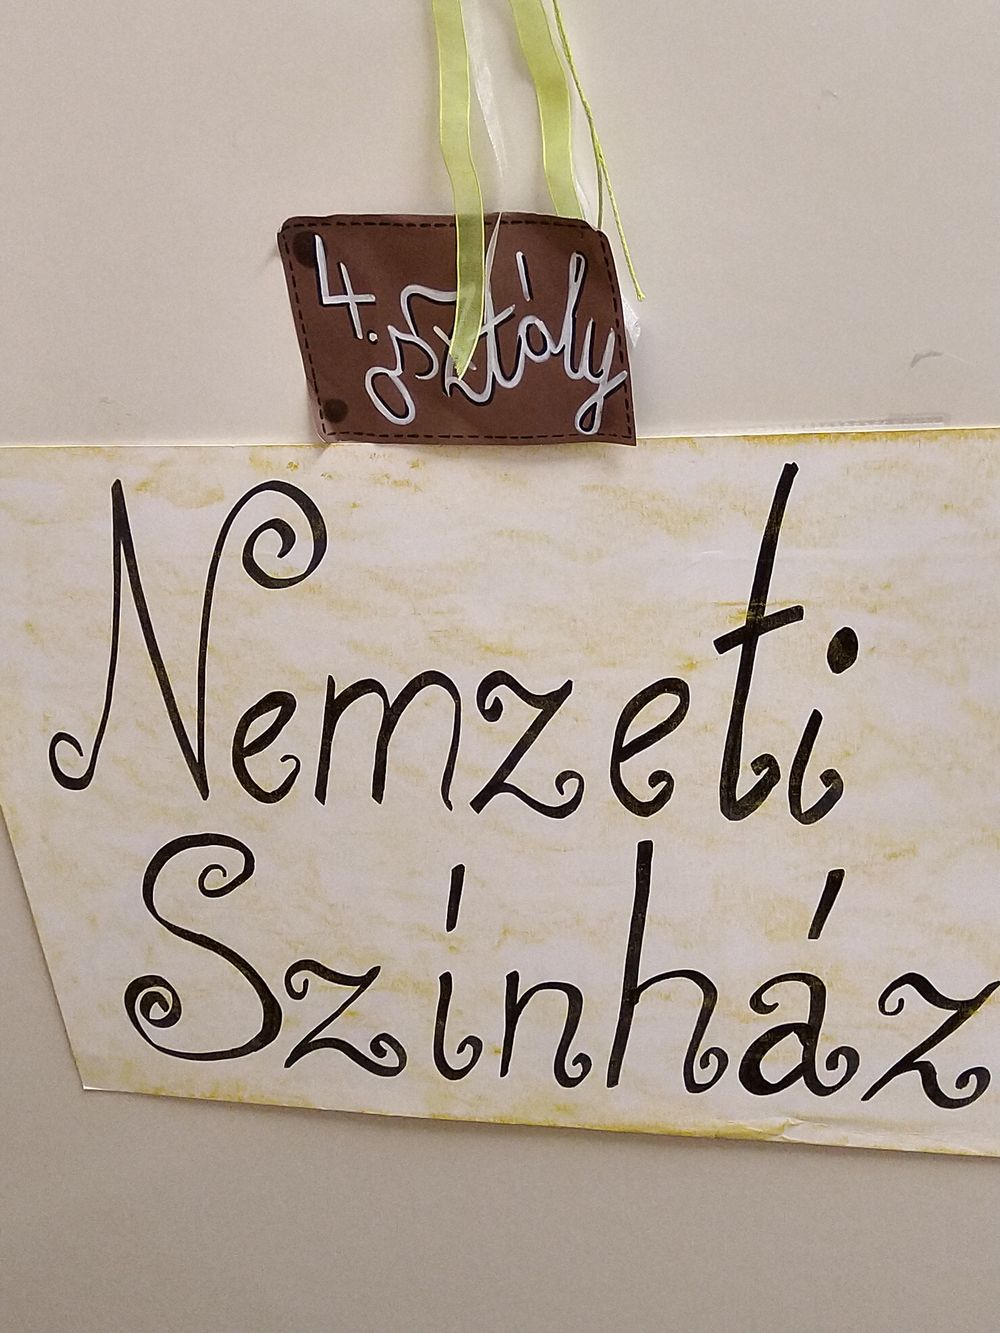 4. osztály
Nemzeti
Színház